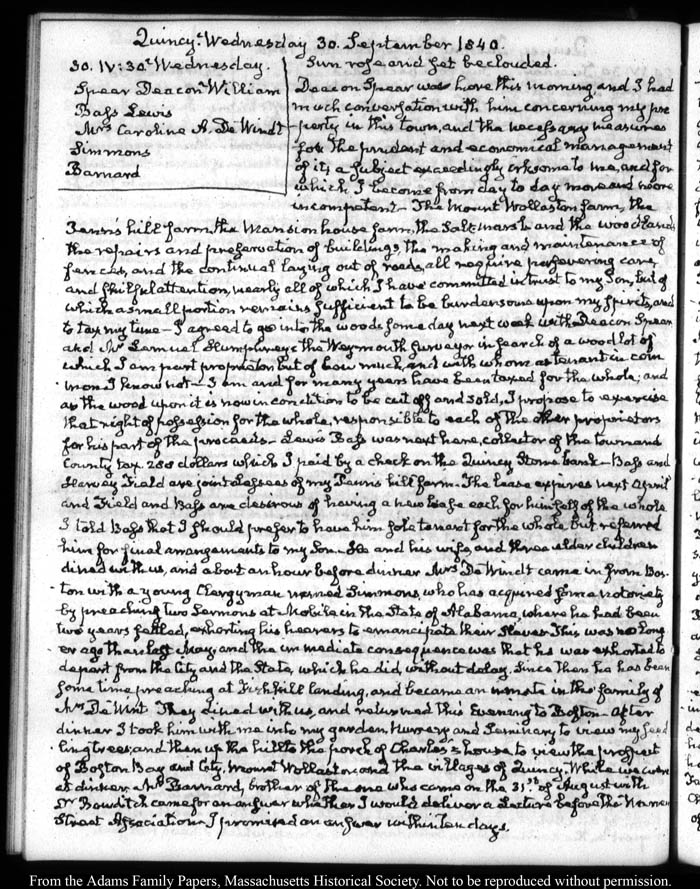 Quincy. Wednesday 30. September 1840.
30. IV:30. Wednesday.
Spear Deacon William
Bass Lewis
Mrs Caroline A. De Windt
Simmons
Barnard
Sun rose and set beclouded.
Deacon Spear was here this morning, and I had
much conversation with him concerning my pro
perty in this town, and the necessary measures
for the prudent and economical management
of it; a subject exceedingly irksome to me, and for
which I become from day to day more and more
incompetent— The Mount Wollaston farm, the
Penn's hill farm, the Mansion house farm, the Salt-marsh and the wood lands
the repairs and preservation of buildings, the making and maintenance of
fences, and the continual laying out of roads, all require persevering care,
and skilful attention, nearly all of which I have committed in trust to my Son, but of
which a small portion remains sufficient to be burdensome upon my spirits, and
to tax my time— I agreed to go into the woods some day next week with Deacon Spear
and Mr Lemuel Humphrey the Weymouth Surveyor in search of a wood lot of
which I am part proprietor but of how much, and with whom as tenant in com
mon I know not— I am and for many years have been taxed for the whole; and
as the wood upon it is now in condition to be cut off and sold, I propose to exercise
that right of possession for the whole, responsible to each of the other proprietors
for his part of the proceeds— Lewis Bass was next here, collector of the town and
County tax 288 dollars which I paid by a check on the Quincy Stone bank— Bass and
Harvey Field are joint lessees of my Penn's hill farm. The lease expires next April
and Field and Bass are desirous of having a new lease each for himself of the whole
I told Bass that I should prefer to have him sole tenant for the whole but referred
him for final arrangements to my Son. He and his wife, and three elder children
dined with us, and about an hour before dinner Mrs De Windt came in from Bos-
ton with a young Clergyman named Simmons, who has acquired some notoriety
by preaching two Sermons at Mobile in the State of Alabama, where he had been
two years settled, exhorting his hearers to emancipate their Slaves. This was no long
er ago than last May, and the immediate consequence was that he was exhorted to
depart from the City and the State, which he did, without delay. Since then he has been
some time preaching at Fishkill landing, and became an inmate in the family of
Mrs De Wint They dined with us, and returned this Evening to Boston— After
dinner I took him with me into my garden, Nursery and Seminary to view my seed
ling trees; and then up the hill to the porch of Charles's house to view the prospect
of Boston Bay and City, Mount Wollaston, and the villages of Quincy. While we were
at dinner Mr Barnard, brother of the one who came on the 31st of August with
Dr Bowditch came for an answer whether I would deliver a Lecture before the Warren
Street Association— I promised an answer within ten days.
From the Adams Family Papers, Massachusetts Historical Society. Not to be reproduced without permission.